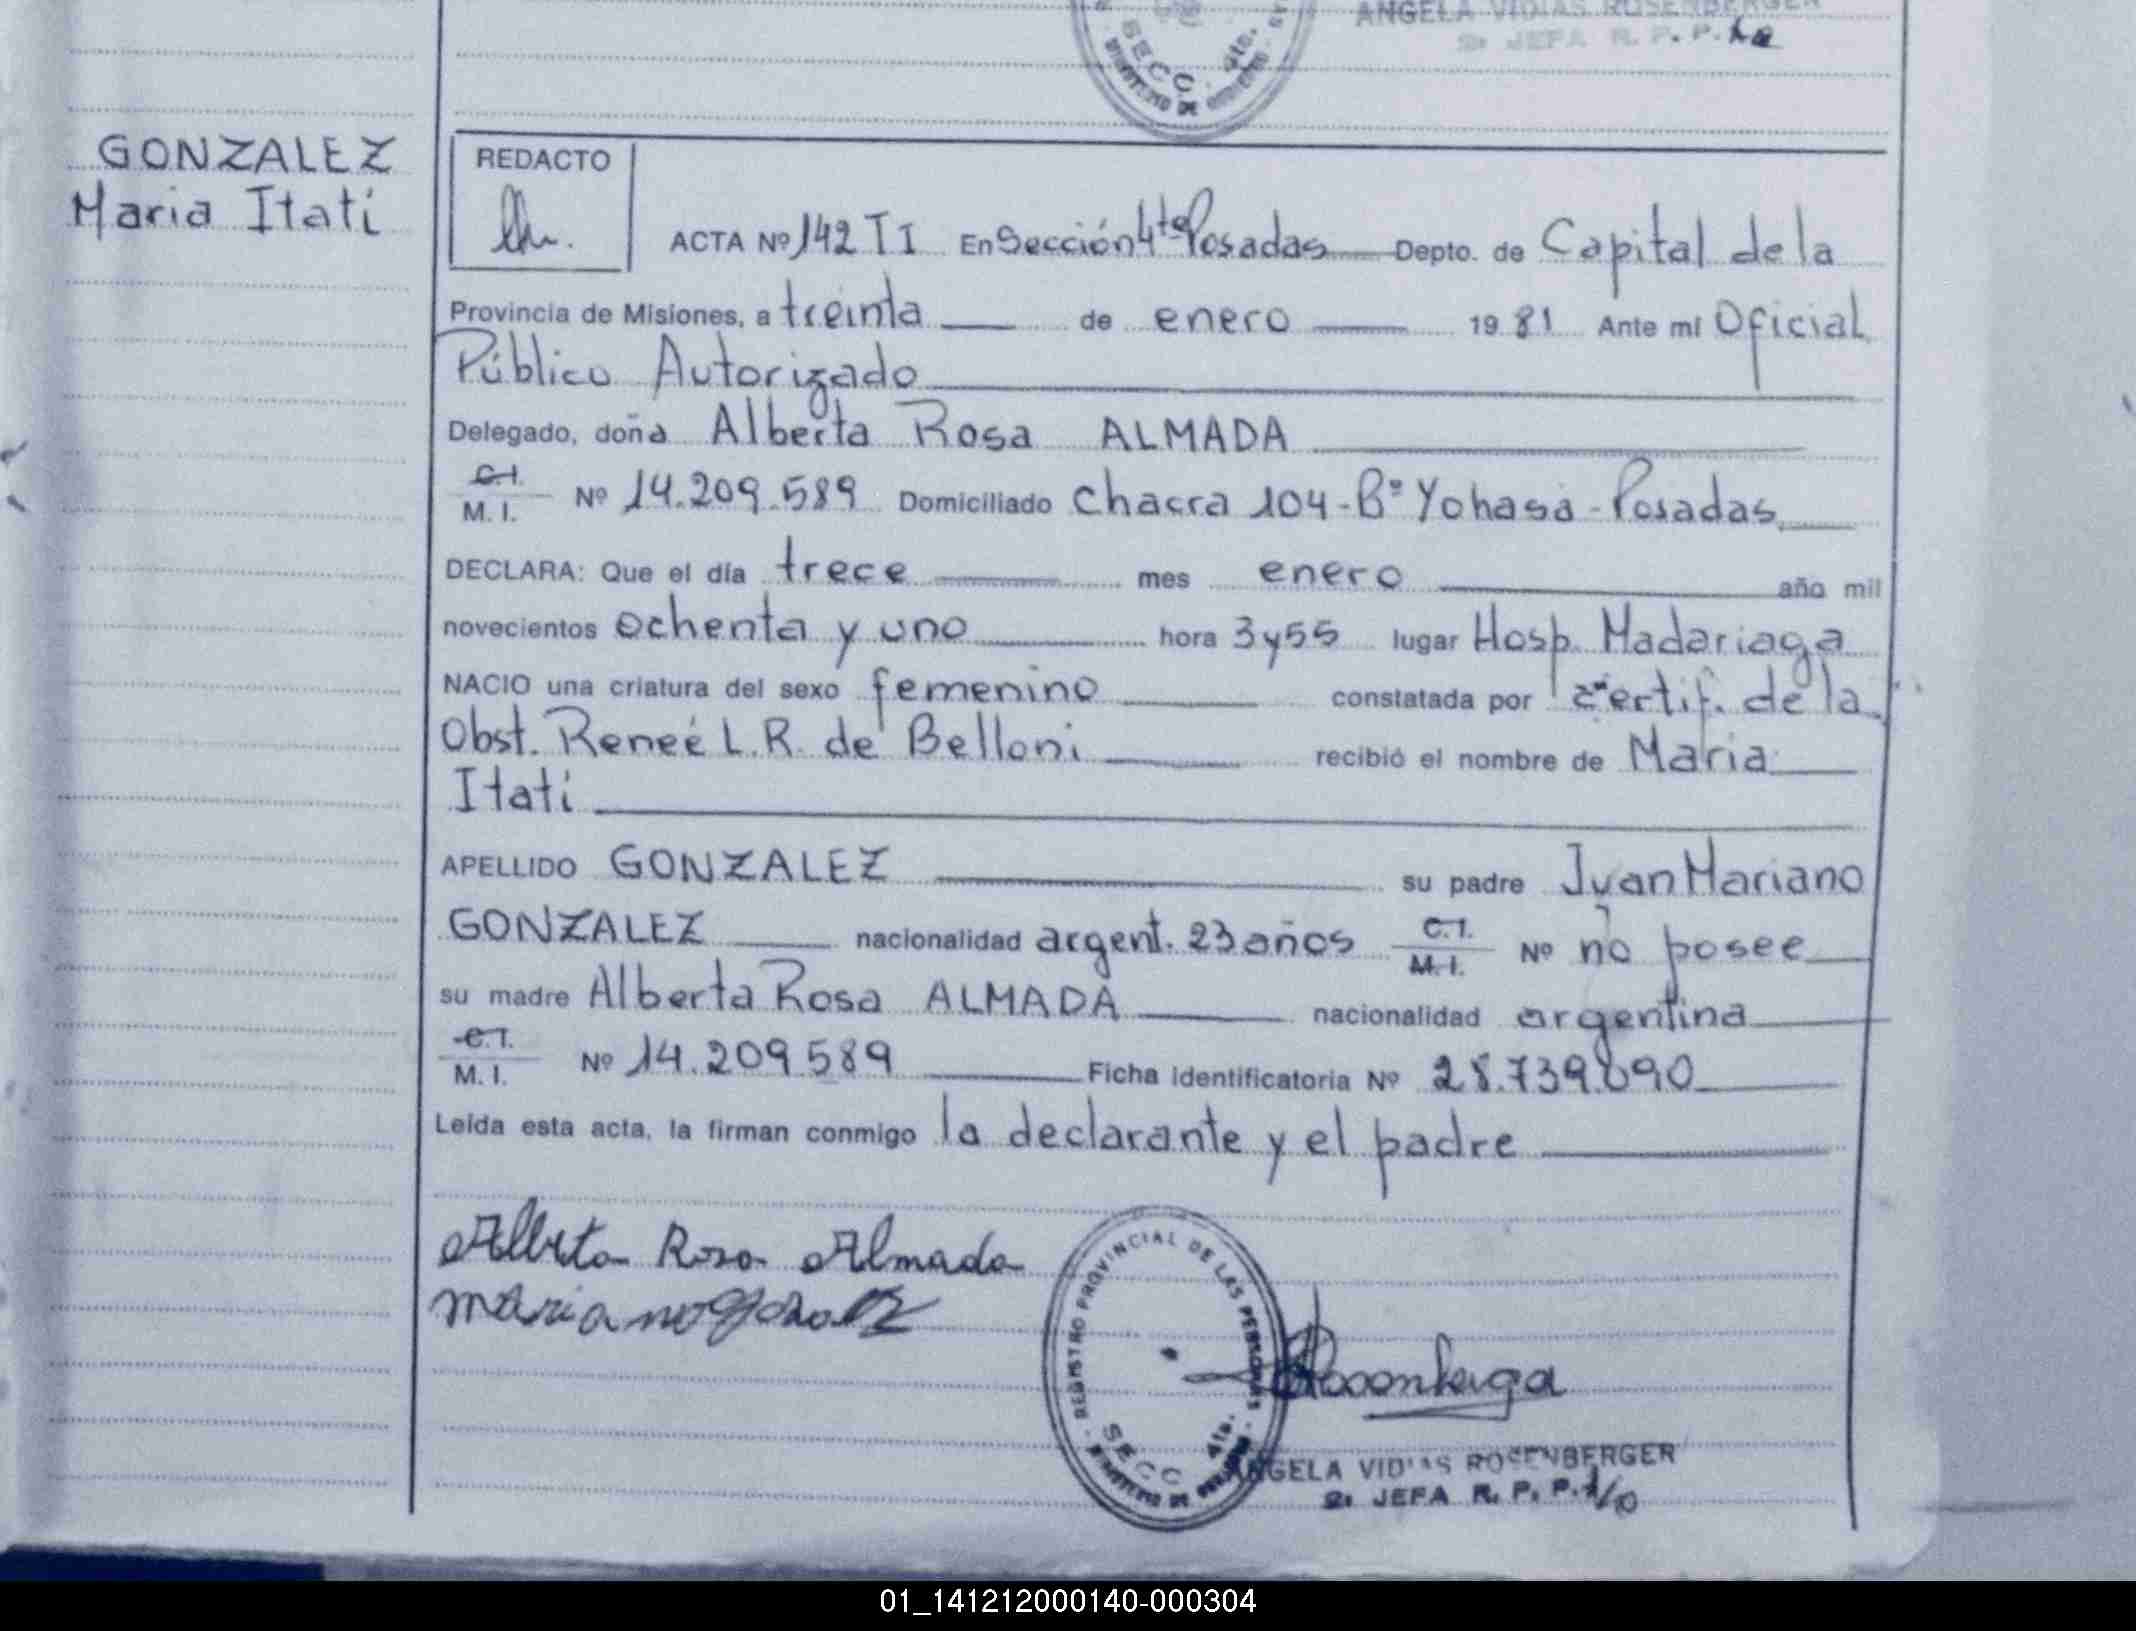 ANGELA VIDIAS ROSENBERGER
2ª JEFA R. P. P.
SECC. 4ta.
GONZALEZ
Maria Itatí
REDACTO
ACTA Nº 142 T I En Sección 4ta Posadas Depto. de Capital de la
Provincia de Misiones, a treinta de enero 19 81 Ante mí Oficial
Público Autorizado
Delegado, doña Alberta Rosa ALMADA
C.I.
M. I. Nº 14.209.589 Domiciliado Chacra 104-Bº Yohasá-Posadas
DECLARA: Que el día trece mes enero año mil
novecientos ochenta y uno hora 3y55 lugar Hosp. Madariaga
NACIO una criatura del sexo femenino constatada por certif. de la
Obst. Reneé L.R. de Belloni recibió el nombre de Maria
Itatí
APELLIDO GONZALEZ su padre Juan Mariano
GONZALEZ nacionalidad argent. 23 años C.I.
M.I. Nº no posee
su madre Alberta Rosa ALMADA nacionalidad argentina
C.I.
M. I. Nº 14.209.589 Ficha Identificatoria Nº 28.739.890
Leída esta acta, la firman conmigo la declarante y el padre
Alberta Rosa Almada
mariano gonzalez
REGISTRO PROVINCIAL DE LAS PERSONAS
SECC. 4ta.
ANGELA VIDIAS ROSENBERGER
2ª JEFA R. P. P.
01_141212000140-000304